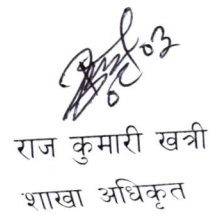 03
राज कुमारी खत्री
शाखा अधिकृत